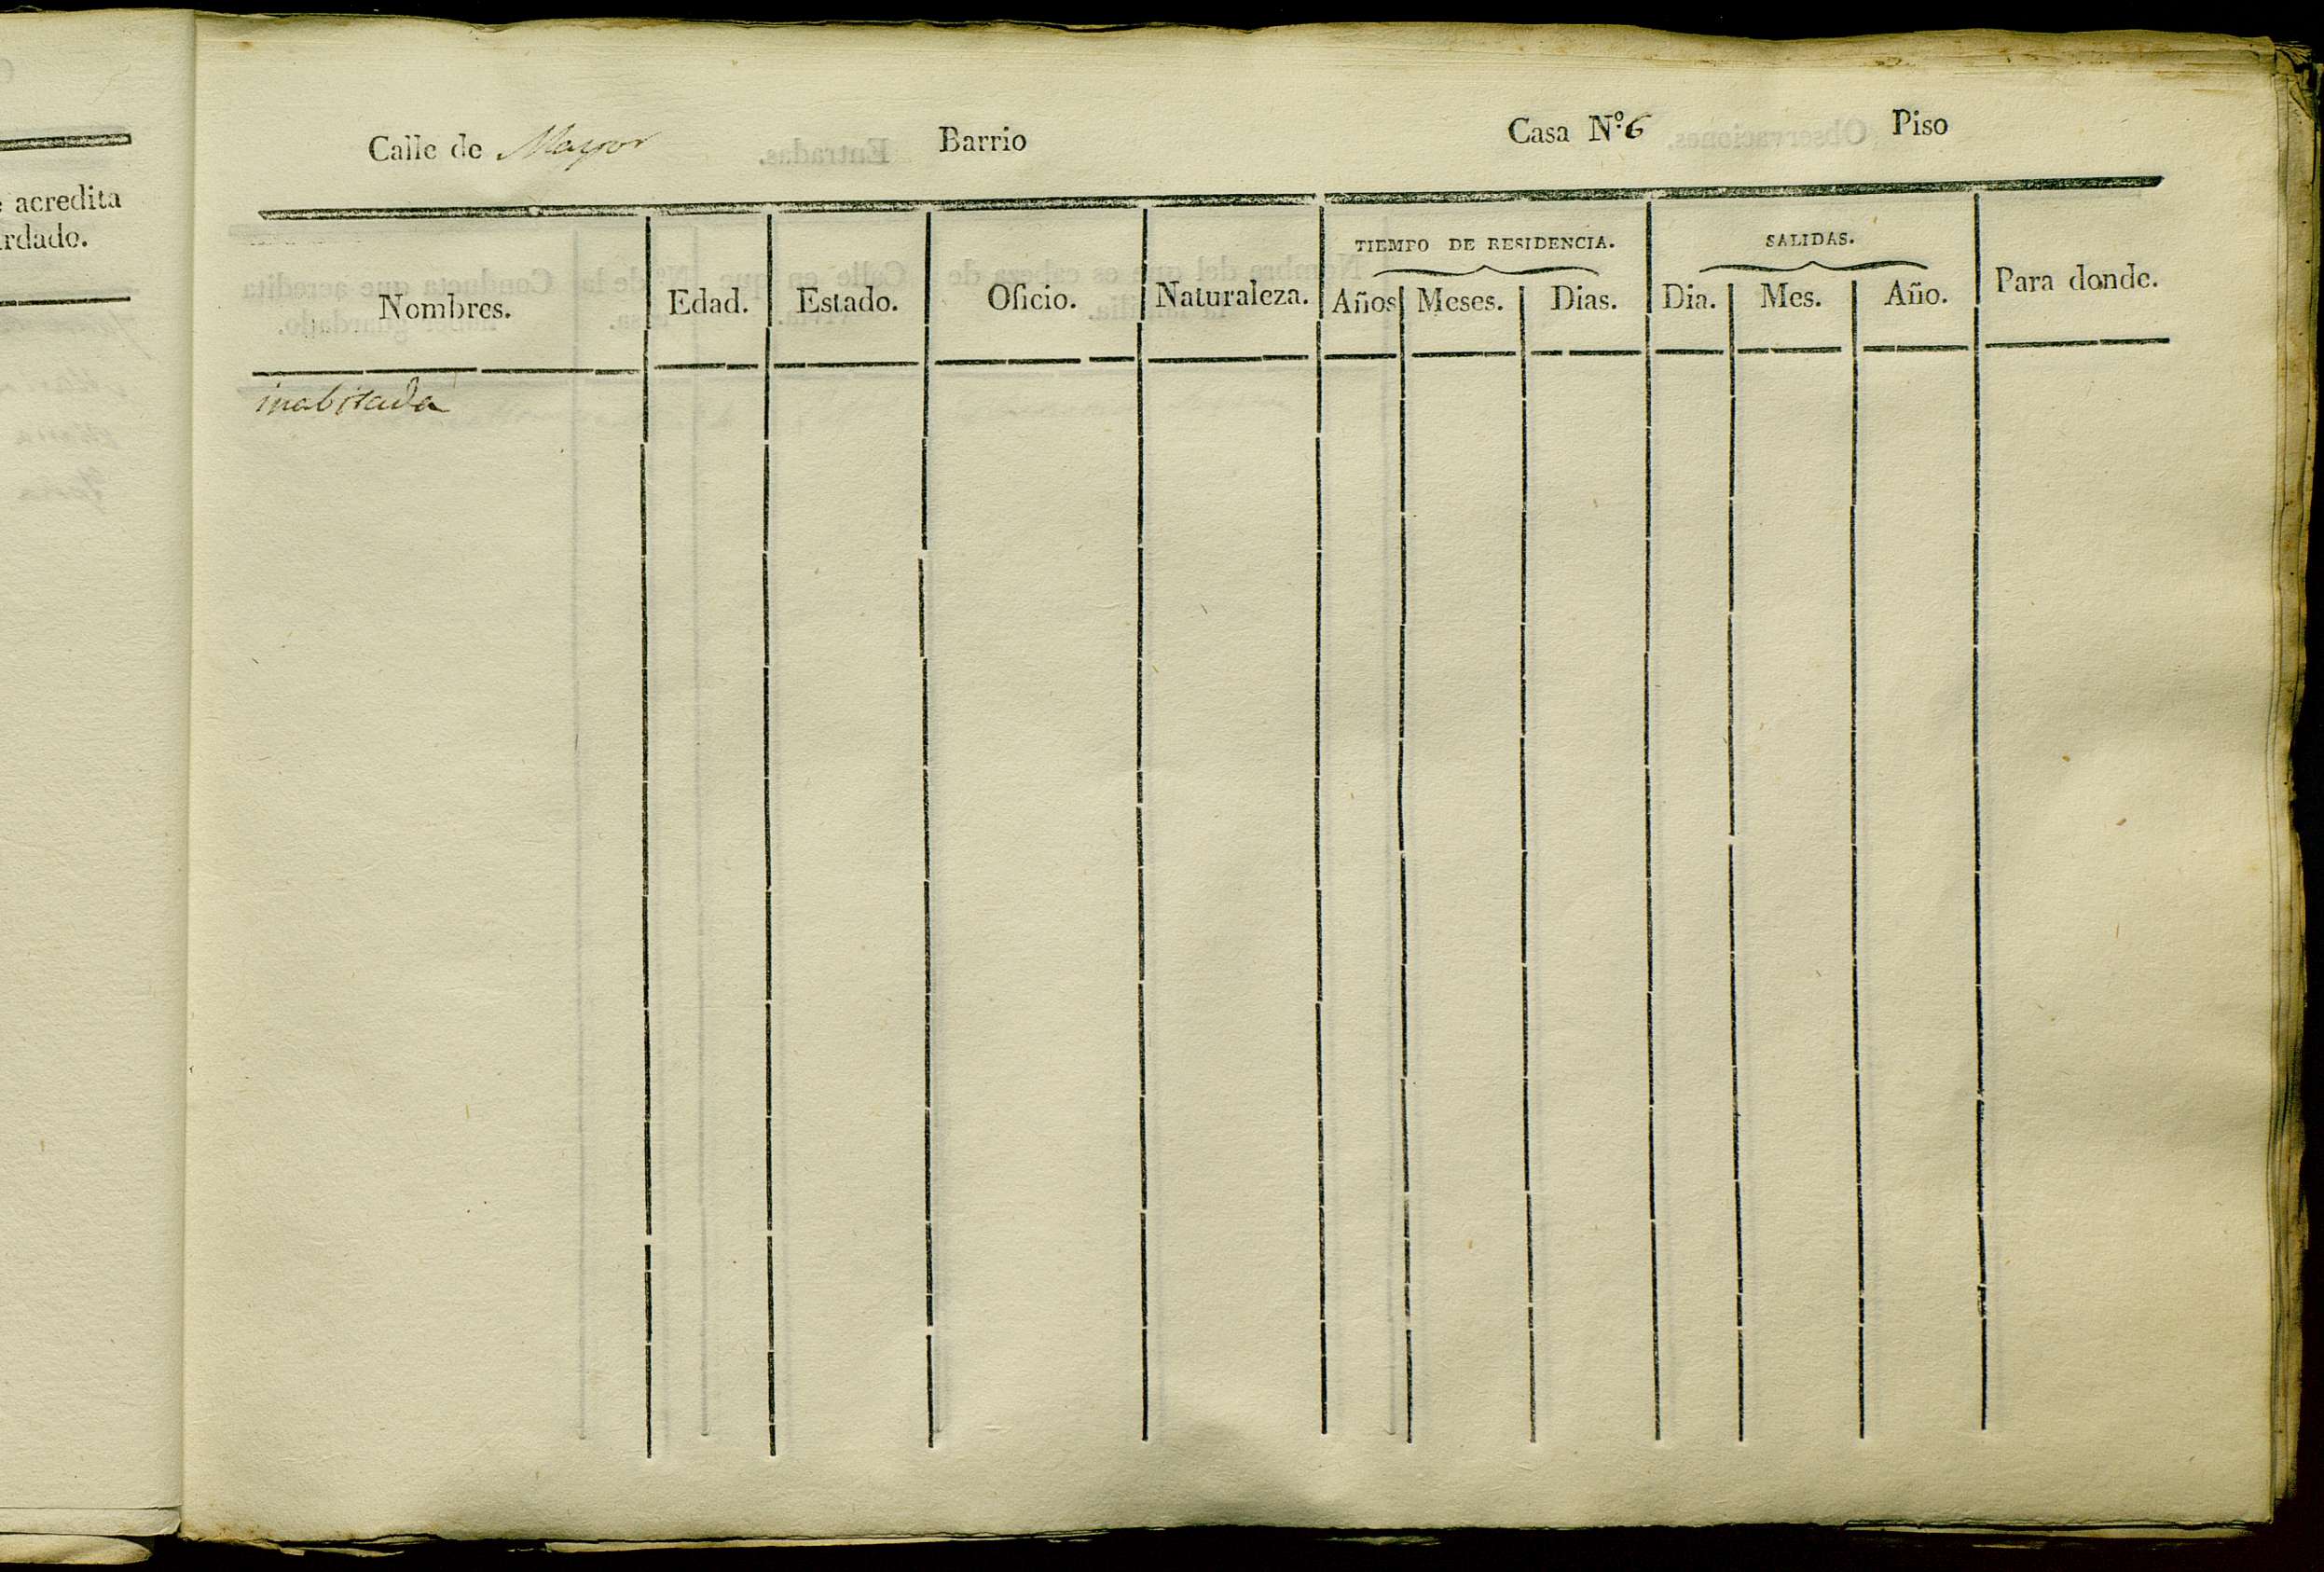 acredita
rdado.
Calle de Mayor Barrio Casa Nº. 6 Piso
TIEMPO DE RESIDENCIA. SALIDAS.
Nombres. Edad. Estado. Oficio. Naturaleza. Años Meses. Dias. Dia. Mes. Año. Para donde.
inabitada